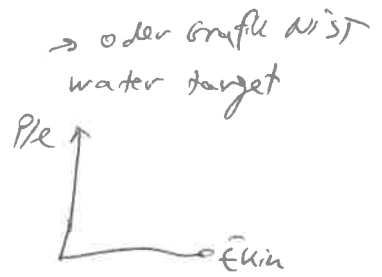 → oder Grafik NIST
water target
P/e
Ekin